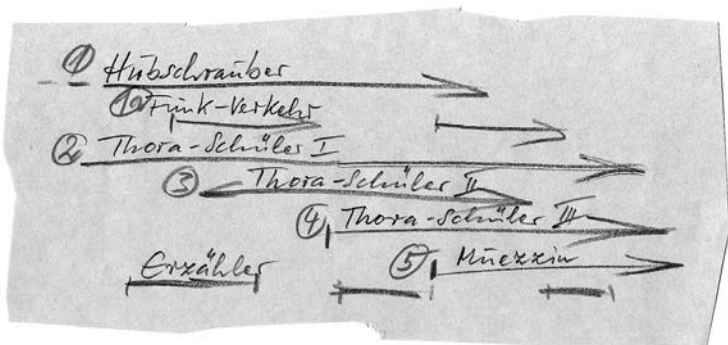 ① Hubschrauber
①a Funk-Verkehr
② Thora-Schüler I
③ Thora-Schüler II
④ Thora-Schüler III
⑤ Muezzin
Erzähler